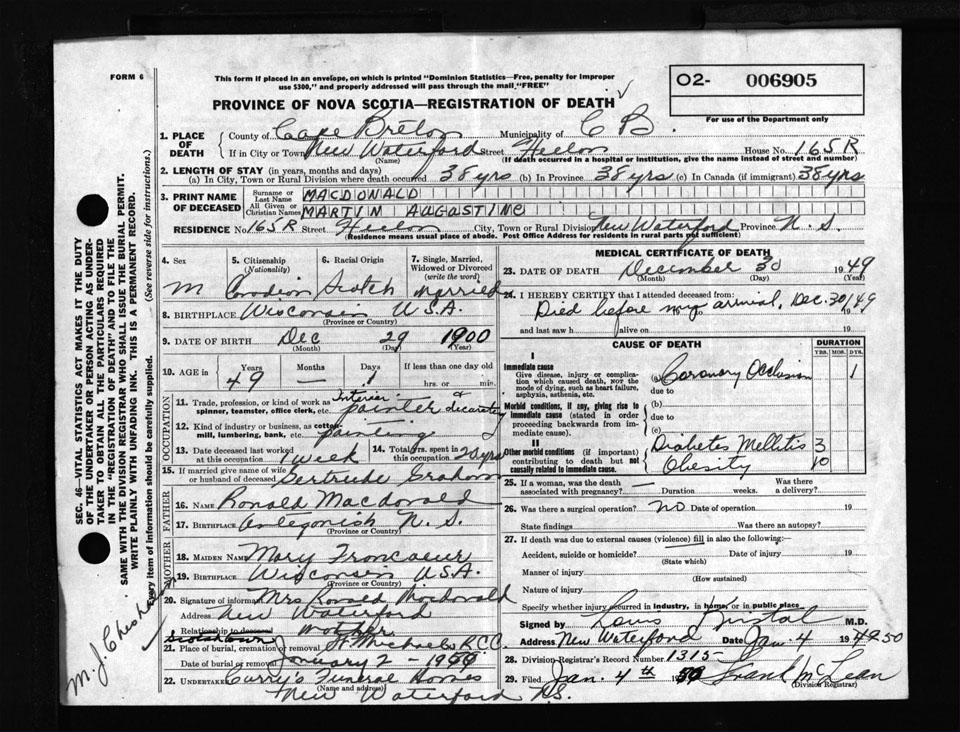 FORM 6
This form if placed in an envelope, on which is printed "Dominion Statistics—Free, penalty for improper
use $300," and properly addressed will pass through the mail "FREE"
O2- 006905
For use of the Department only
PROVINCE OF NOVA SCOTIA—REGISTRATION OF DEATH
1. PLACE OF DEATH
County of Cape Breton Municipality of C B.
If in City or Town New Waterford Street House No. 165R
(Name) (If death occurred in a hospital or institution, give the name instead of street and number)
2. LENGTH OF STAY (in years, months and days)
(a) In City, Town or Rural Division where death occurred 38 yrs (b) In Province 38 yrs (c) In Canada (if immigrant) 38 yrs
3. PRINT NAME OF DECEASED
Surname or Last Name MACDONALD
All Given or Christian Names MARTIN AUGUSTINE
RESIDENCE No. 165R Street City, Town or Rural Division New Waterford Province N. S.
(Residence means usual place of abode. Post Office Address for residents in rural parts not sufficient)
4. Sex 5. Citizenship (Nationality) 6. Racial Origin 7. Single, Married, Widowed or Divorced (write the word)
M Canadian Scotch Married
8. BIRTHPLACE Wisconsin U.S.A.
(Province or Country)
9. DATE OF BIRTH Dec 29 1900
(Month) (Day) (Year)
10. AGE in Years Months Days If less than one day old
49 — 1 hrs. or min.
OCCUPATION
11. Trade, profession, or kind of work as spinner, teamster, office clerk, etc. Interior painter & decorating
12. Kind of industry or business, as cotton mill, lumbering, bank, etc. painting
13. Date deceased last worked at this occupation 1 week 14. Total yrs. spent in this occupation 20 yrs
15. If married give name of wife or husband of deceased Gertrude Graham
FATHER
16. Name Ronald Macdonald
17. Birthplace Antegonish N. S.
(Province or Country)
MOTHER
18. Maiden Name Mary Francoeur
19. Birthplace Wisconsin U.S.A.
(Province or Country)
20. Signature of informant Mrs Ronald Macdonald
Address New Waterford
Relationship to deceased mother
21. Place of burial, cremation or removal St Michaels R.C.C.
Date of burial or removal January 2 - 1950
22. UNDERTAKER Curry's Funeral Homes
(Name and address)
New Waterford N.S.
MEDICAL CERTIFICATE OF DEATH
23. DATE OF DEATH December 30 1949
(Month) (Day) (Year)
24. I HEREBY CERTIFY that I attended deceased from:
Died before my arrival, Dec. 30/49
and last saw h alive on 19
CAUSE OF DEATH
DURATION
YRS. MOS. DYS.
I
Immediate cause
Give disease, injury or complication which caused death, NOT the mode of dying, such as heart failure, asphyxia, asthenia, etc.
(a) Coronary Occlusion 1
due to
Morbid conditions, if any, giving rise to immediate cause (stated in order proceeding backwards from immediate cause).
(b)
due to
(c)
II
Other morbid conditions (if important) contributing to death but not causally related to immediate cause.
Diabetes Mellitis 3
Obesity 10
25. If a woman, was the death associated with pregnancy? — Duration weeks. Was there a delivery?
26. Was there a surgical operation? no Date of operation 19
State findings Was there an autopsy?
27. If death was due to external causes (violence) fill in also the following:—
Accident, suicide or homicide? Date of injury 19
(State which)
Manner of injury
(How sustained)
Nature of injury
Specify whether injury occurred in industry, in home, or in public place
Signed by M.D.
Address New Waterford Date Jan. 4 1950
28. Division Registrar's Record Number 1315-
29. Filed Jan. 4th 1950 Frank McLean
(Division Registrar)
SEC. 46—VITAL STATISTICS ACT MAKES IT THE DUTY
OF THE UNDERTAKER OR PERSON ACTING AS UNDERTAKER TO OBTAIN ALL THE PARTICULARS REQUIRED
IN THE "REGISTRATION OF DEATH" AND TO FILE THE
SAME WITH THE DIVISION REGISTRAR WHO SHALL ISSUE THE BURIAL PERMIT.
WRITE PLAINLY WITH UNFADING INK. THIS IS A PERMANENT RECORD.
Every item of information should be carefully supplied. (See reverse side for instructions.)